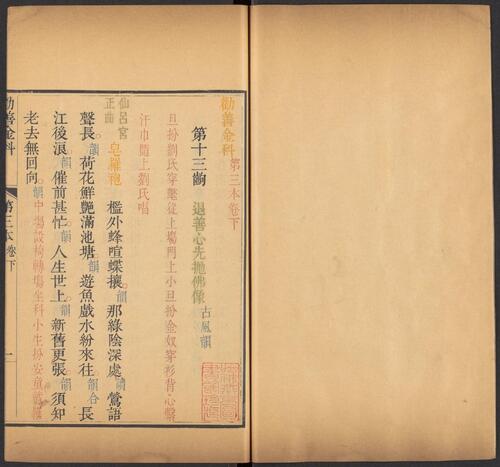 勸善金科 第三本卷下
第十三齣 退善心先拋佛像 古風韻
旦扮劉氏穿氅從上場門上小旦扮金奴穿衫背心繫
汗巾隨上劉氏唱
仙呂宮正曲 皂羅袍 檻外蜂喧蝶攘韻那綠陰深處讀鶯語
聲長韻荷花鮮艷滿池塘韻遊魚戲水紛來往韻合長
江後浪韻催前甚忙韻人生世上韻新舊更張韻須知
老去無回向韻中場設椅轉場坐科小生扮安童
勸善金科
第三本卷下
一